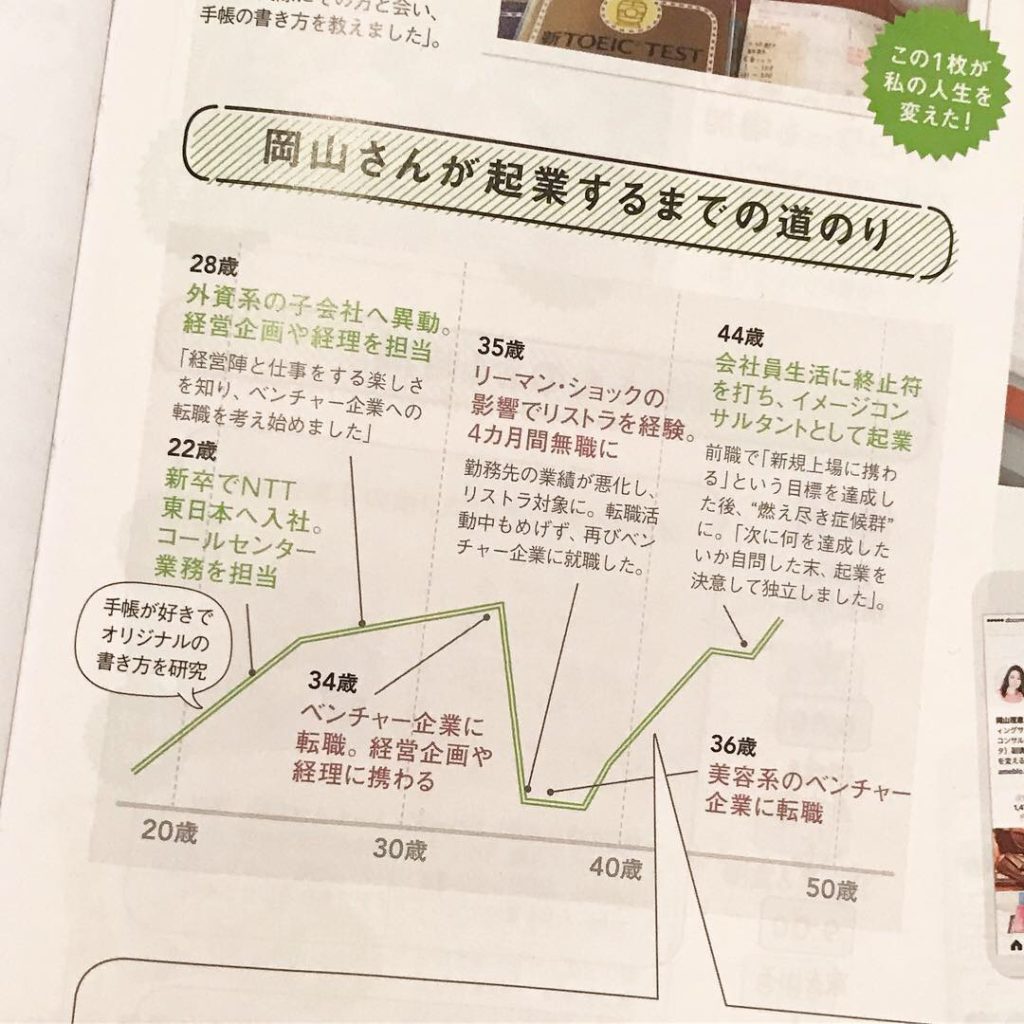 手帳の書き方を教えました」。
新TOEIC TEST
この1枚が
私の人生を
変えた!
岡山さんが起業するまでの道のり
28歳
外資系の子会社へ異動。
経営企画や経理を担当
「経営陣と仕事をする楽しさ
を知り、ベンチャー企業への
転職を考え始めました」
22歳
新卒でNTT
東日本へ入社。
コールセンター
業務を担当
手帳が好きで
オリジナルの
書き方を研究
34歳
ベンチャー企業に
転職。経営企画や
経理に携わる
35歳
リーマン・ショックの
影響でリストラを経験。
4カ月間無職に
勤務先の業績が悪化し、
リストラ対象に。転職活
動中もめげず、再びベン
チャー企業に就職した。
36歳
美容系のベンチャー
企業に転職
44歳
会社員生活に終止符
を打ち、イメージコン
サルタントとして起業
前職で「新規上場に携わ
る」という目標を達成し
た後、“燃え尽き症候群”
に。「次に何を達成した
いか自問した末、起業を
決意して独立しました」。
20歳
30歳
40歳
50歳